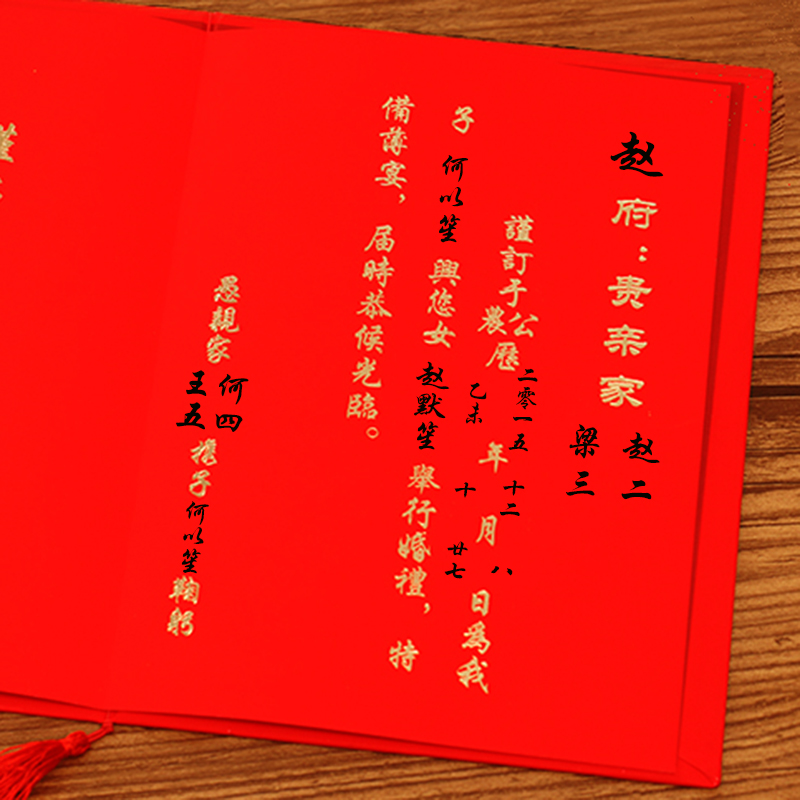 赵府：贵亲家 赵二
梁三
謹訂于公農歷 二零一五 乙未 年 十二 十 月 八 廿七 日為我
子 何以笙 與您女 赵默笙 舉行婚禮，特
備薄宴，届時恭候光臨。
愚親家 何四 王五 携子何以笙鞠躬